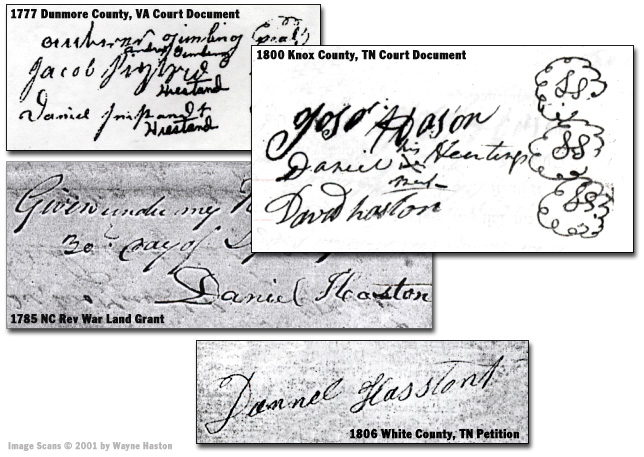 1777 Dunmore County, VA Court Document
Jacob
Hiestand
Daniel
Hiestand
1800 Knox County, TN Court Document
Jos. Hason
his
Daniel
David haston
SS.
SS
SS
Given under my
30 day of
Daniel Haston
1785 NC Rev War Land Grant
Dannel Hasstont
1806 White County, TN Petition
Image Scans © 2001 by Wayne Haston